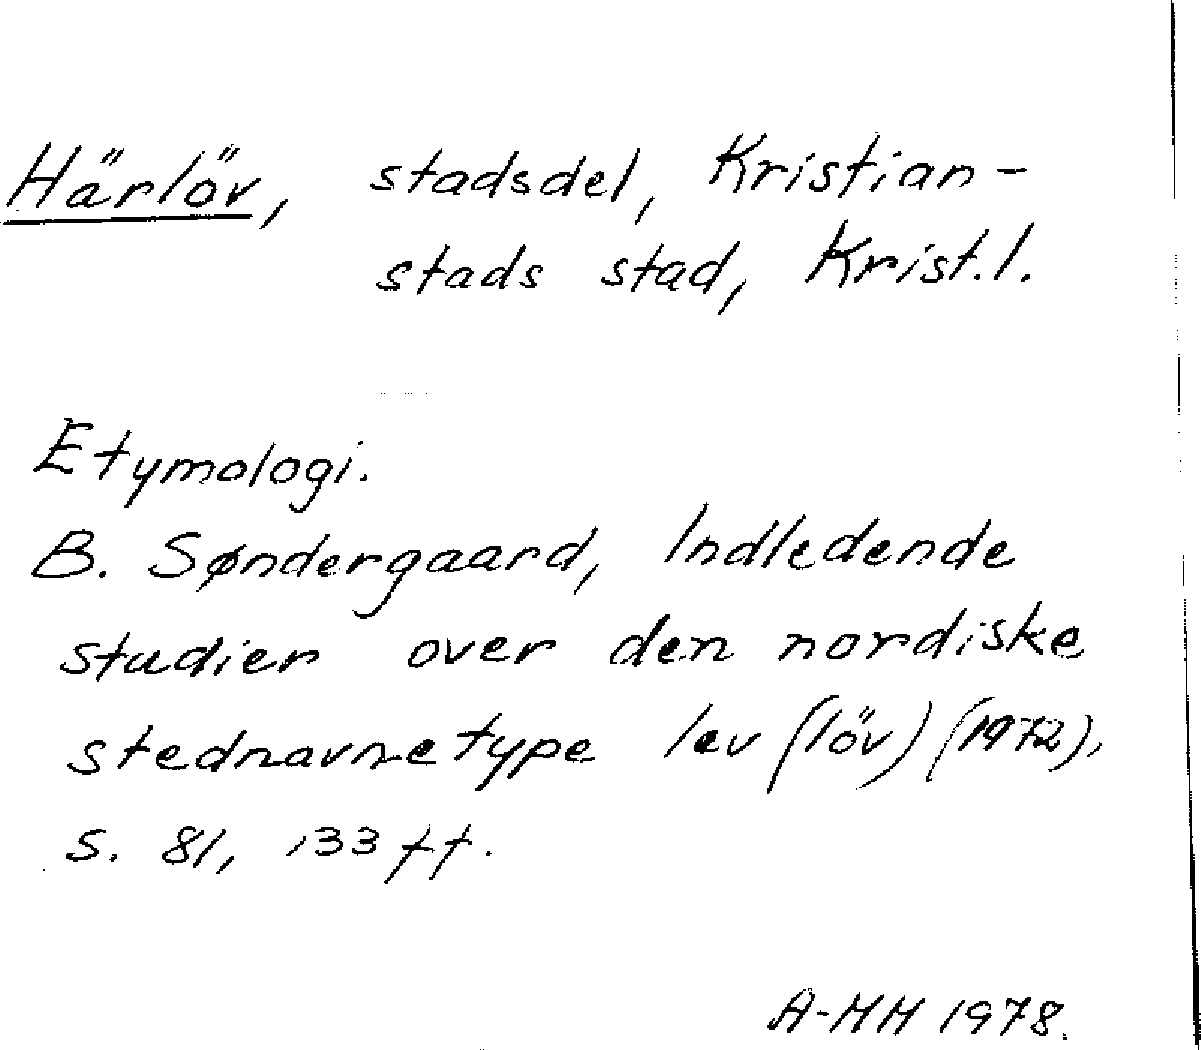 Härlöv, stadsdel, Kristian-
stads stad, Krist.l.
Etymologi.
B. Søndergaard, Indledende
studier over den nordiske
stednavnetype lev (löv) (1972),
s. 81, 133 ff.
A-MH 1978.